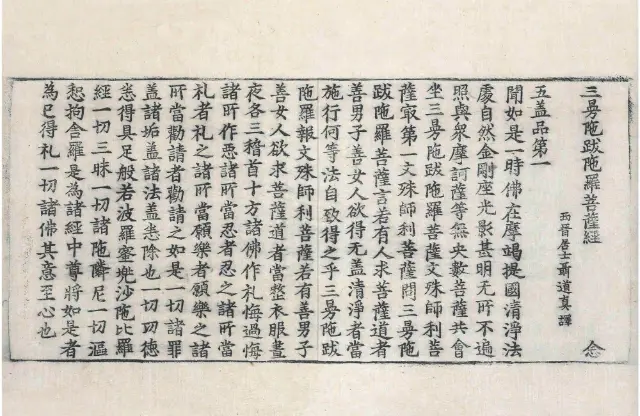 三曼陁跋陁羅菩薩經 念
西晉居士聶道真譯
五盖品第一
聞如是一時佛在摩竭提國清淨法
處自然金剛座光影甚明无所不遍
照與衆摩訶薩等無央數菩薩共會
坐三曼陁跋陁羅菩薩文殊師利菩
薩㝡第一文殊師利菩薩問三曼陁
跋陁羅菩薩言若有人求菩薩道者
善男子善女人欲得无盖清淨者當
施行何等法自致得之乎三曼陁跋
陁羅報文殊師利菩薩若有善男子
善女人欲求菩薩道者當整衣服晝
夜各三稽首十方諸佛作礼悔過悔
諸所作惡諸所當忍者忍之諸所當
礼者礼之諸所當願樂者願樂之諸
所當勸請者勸請之如是一切諸罪
盖諸垢盖諸法盖悉除也一切功德
悉得具足般若波羅蜜兜沙陁比羅
經一切三昧一切諸陁隣尼一切漚
惒拘舍羅是為諸經中尊將如是者
為已得礼一切諸佛其意至心也